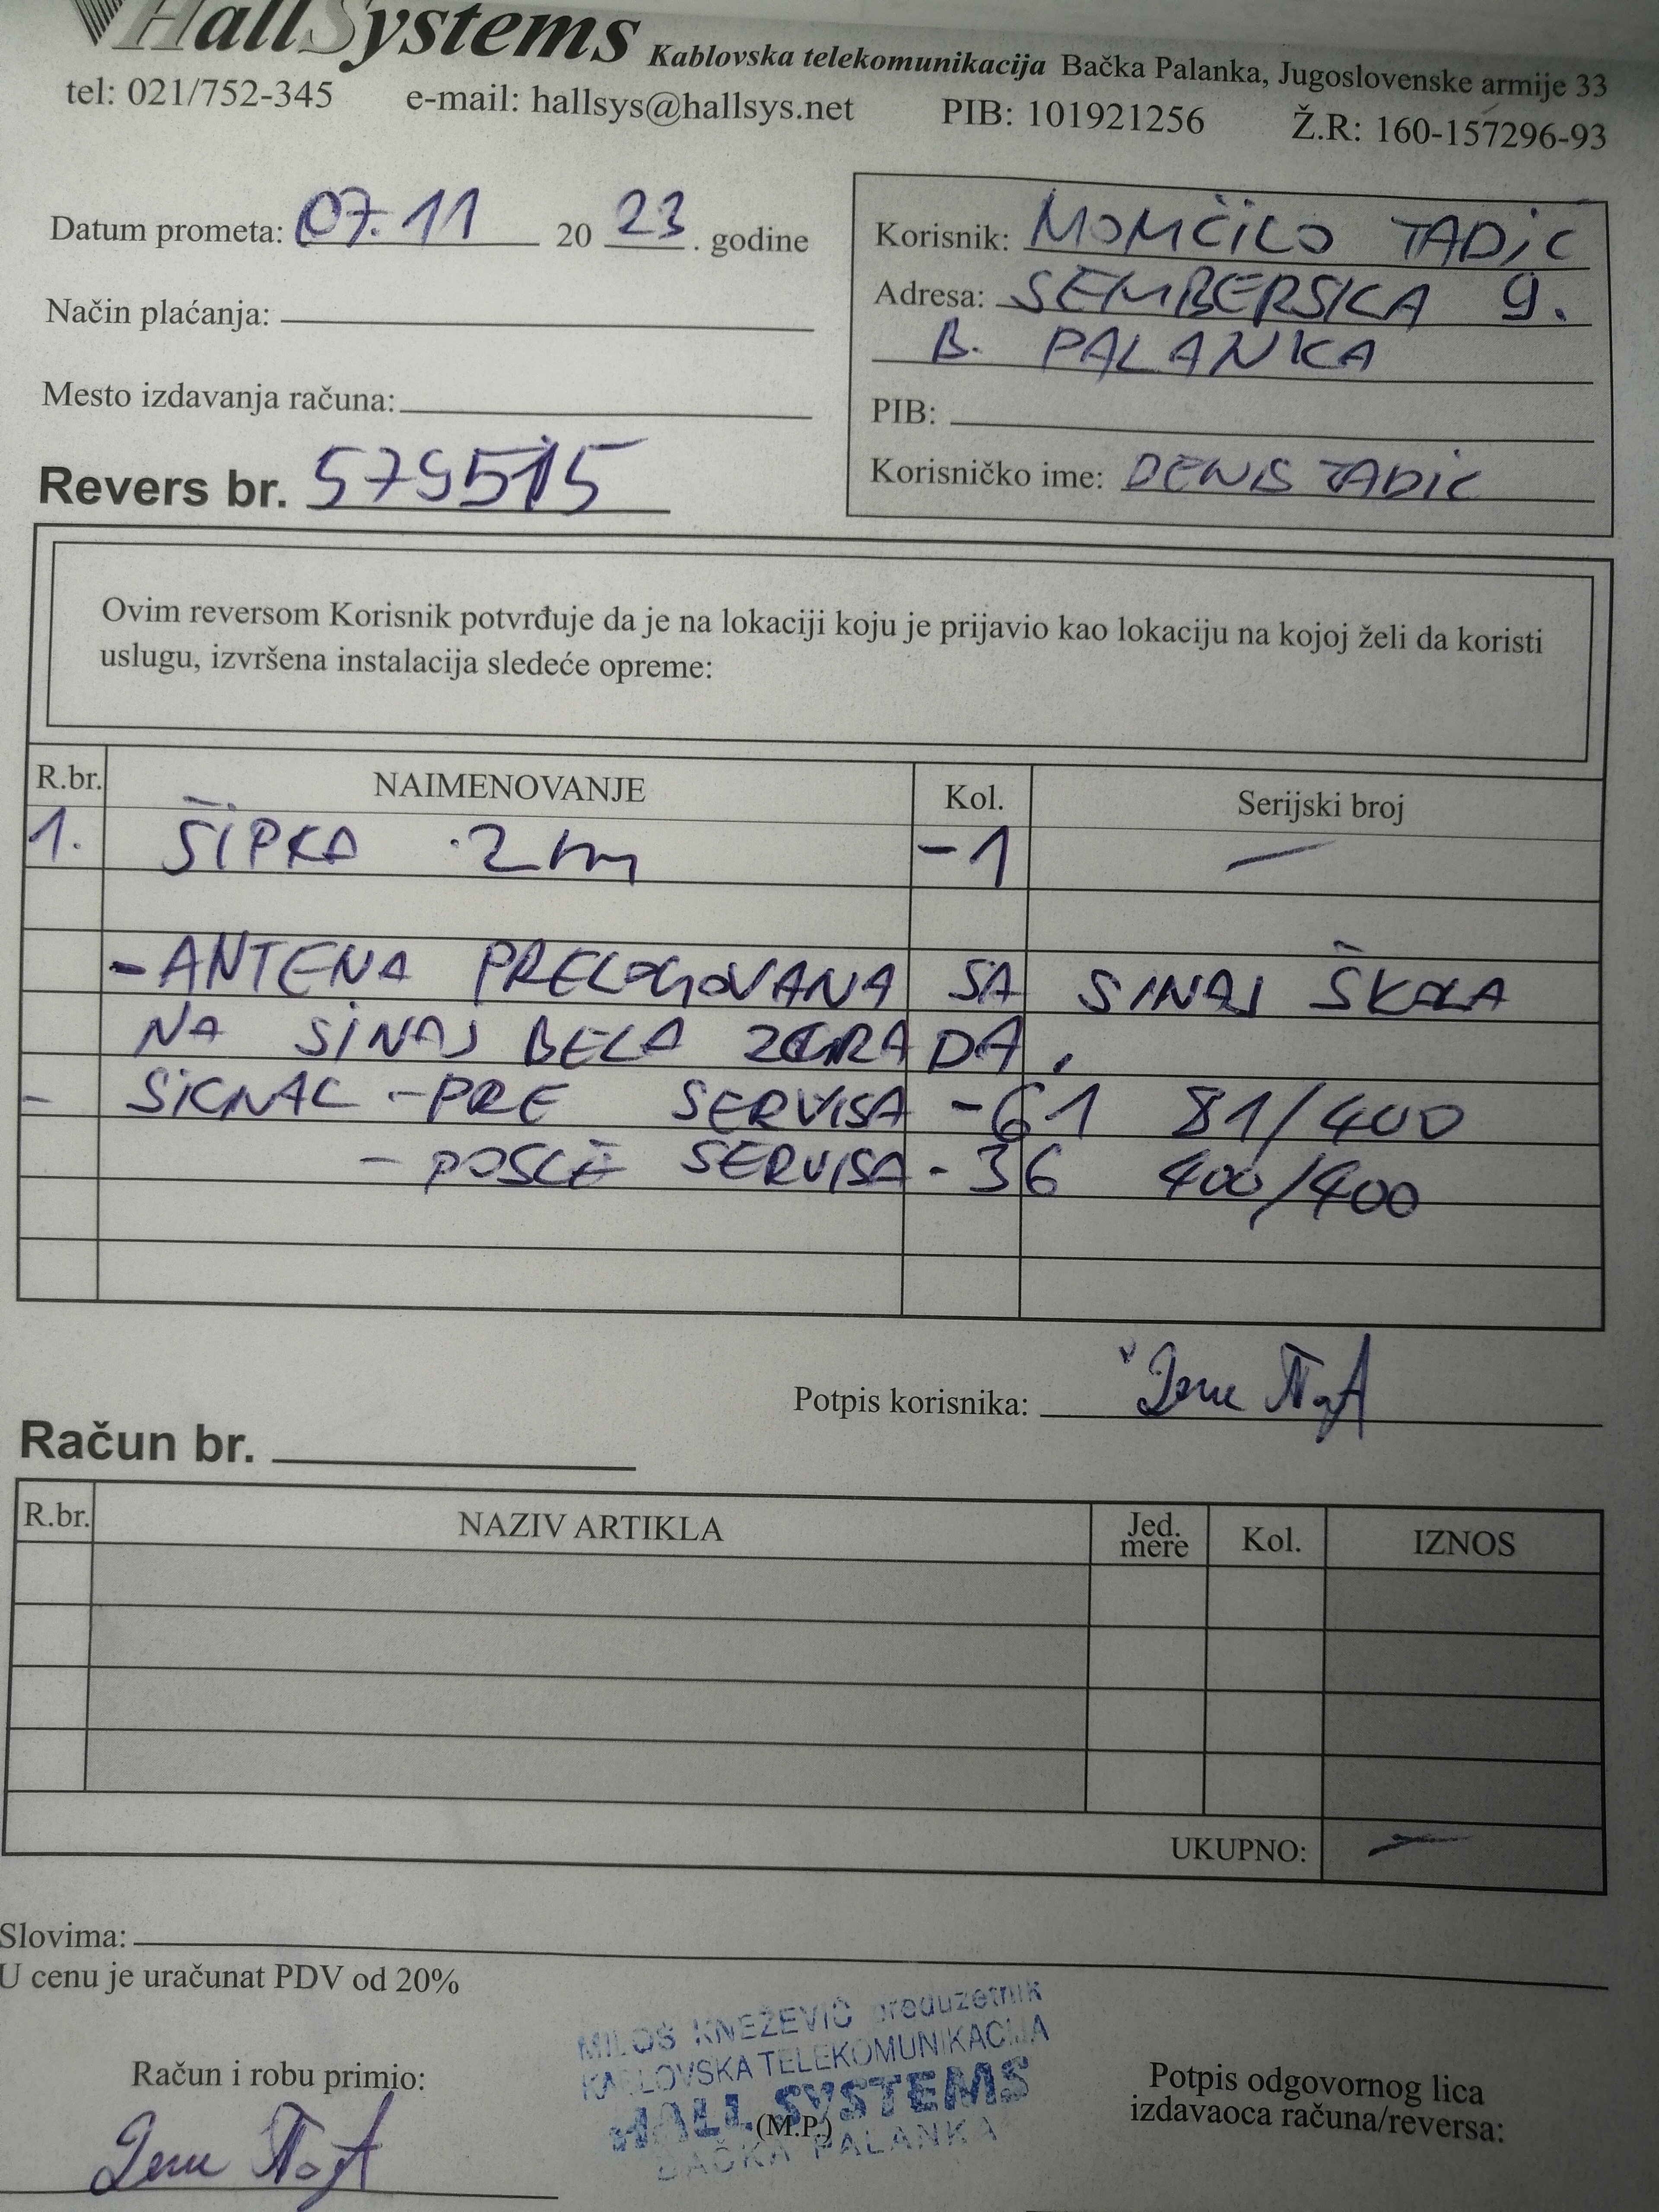 HallSystems Kablovska telekomunikacija Bačka Palanka, Jugoslovenske armije 33
tel: 021/752-345 e-mail: hallsys@hallsys.net PIB: 101921256 Ž.R: 160-157296-93
Datum prometa: 07.11 20 23. godine
Korisnik: MOMČILO TADIĆ
Adresa: SEMBERSKA 9.
B. PALANKA
Način plaćanja:
Mesto izdavanja računa:
PIB:
Korisničko ime: DENIS TADIC
Revers br. 579515
Ovim reversom Korisnik potvrđuje da je na lokaciji koju je prijavio kao lokaciju na kojoj želi da koristi
uslugu, izvršena instalacija sledeće opreme:
R.br. NAIMENOVANJE Kol. Serijski broj
1. ŠIPKA 2m -1 —
- ANTENA PRELOGOVANA SA SINAJ ŠKOLA
NA SINAJ BELA ZGRADA.
- SIGNAL - PRE SERVISA -61 81/400
- POSLE SERVISA -36 400/400
Potpis korisnika:
Račun br.
R.br. NAZIV ARTIKLA Jed. mere Kol. IZNOS
UKUPNO: —
Slovima:
U cenu je uračunat PDV od 20%
MILOŠ KNEŽEVIĆ preduzetnik
KABLOVSKA TELEKOMUNIKACIJA
HALL SYSTEMS
(M.P.)
BAČKA PALANKA
Račun i robu primio:
Potpis odgovornog lica
izdavaoca računa/reversa: